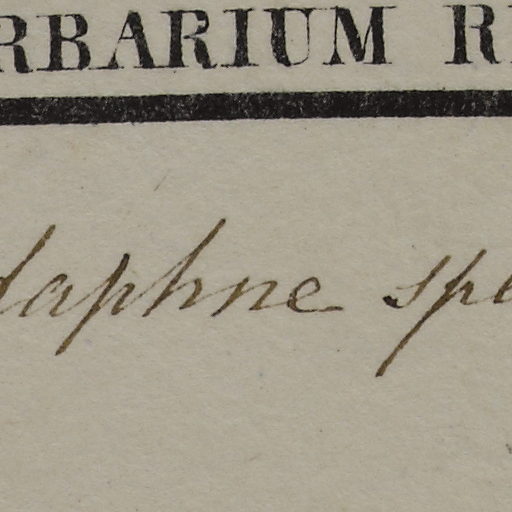 RBARIUM R
daphne spe